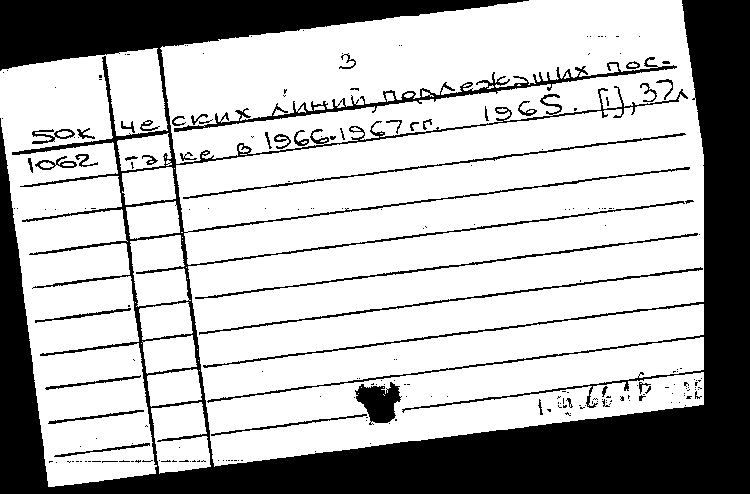 3
50к ческих линий, подлежащих пос-
1062 тавке в 1966-1967 гг. 1965. [1], 37л.
1.IV.66.